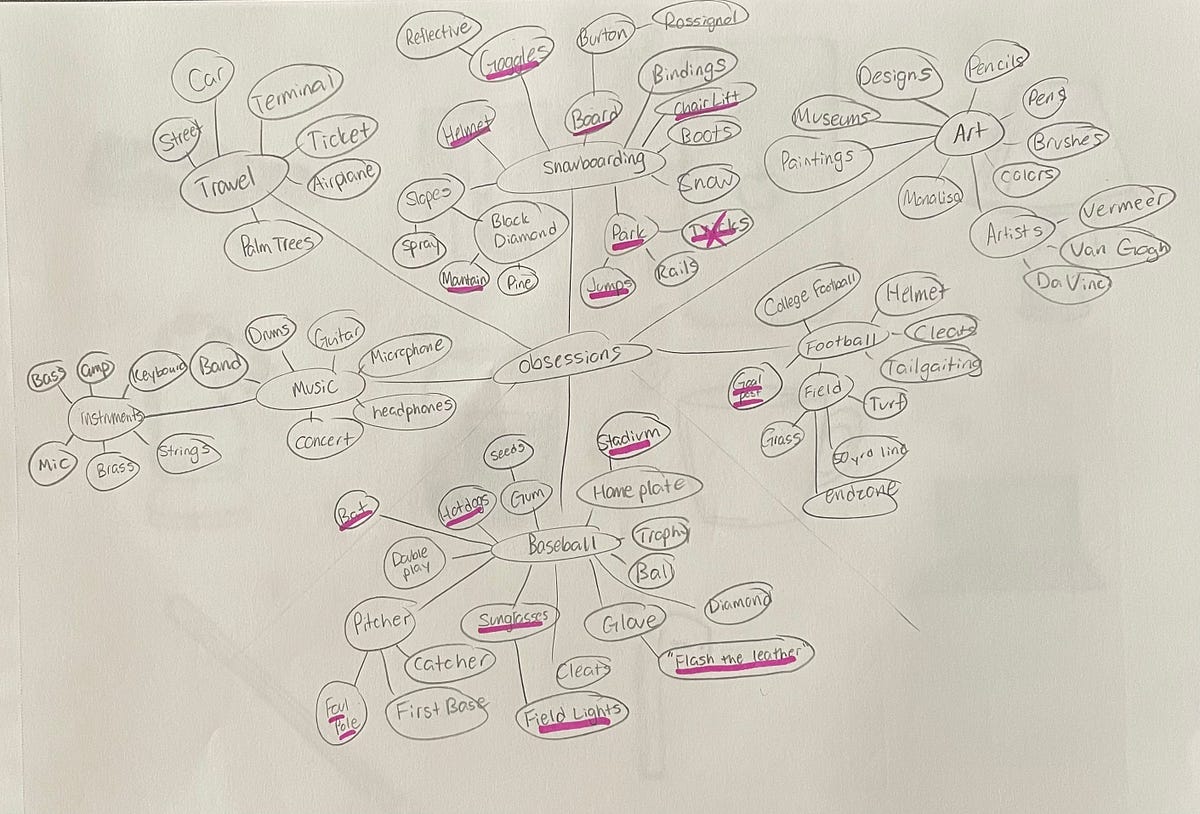 Reflective
Goggles
Burton
Rossignol
Car
Terminal
Street
Ticket
Travel
Airplane
Palm Trees
Helmet
Board
Bindings
Chair Lift
Boots
Snowboarding
Snow
Slopes
Black
Diamond
Spray
Mantain
Pine
Park
Jumps
Rails
Designs
Pencils
Pens
Museums
Art
Brushes
Paintings
Colors
Monalisa
Artists
Vermeer
Van Gogh
Da Vinci
obsessions
College Football
Helmet
Football
Cleats
Tailgaiting
Goal
post
Field
Turf
Grass
50 yrd line
endzone
Drums
Guitar
Microphone
Band
Keyboard
amp
Bass
Music
headphones
concert
Instruments
Mic
Brass
Strings
Seeds
Stadium
Bat
Hotdogs
Gum
Home plate
Baseball
Trophy
Double
play
Ball
Pitcher
Sunglasses
Glove
Diamond
Catcher
Cleats
"Flash the leather"
Foul
Pole
First Base
Field Lights